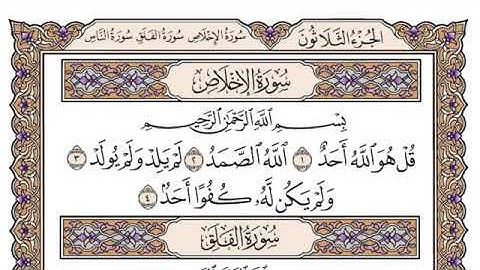 الجزء الثلاثون سورة الإخلاص سورة الفلق سورة الناس
سورة الإخلاص
بسم الله الرحمن الرحيم
قُلْ هُوَ اللَّهُ أَحَدٌ ١ اللَّهُ الصَّمَدُ ٢ لَمْ يَلِدْ وَلَمْ يُولَدْ ٣
وَلَمْ يَكُن لَّهُ كُفُوًا أَحَدٌ ٤
سورة الفلق